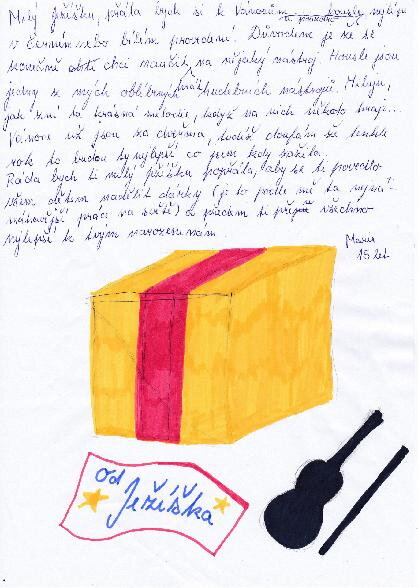 Milý Ježíšku, přála bych si k Vánocům housle nejlépe
v černém nebo bílém provedení. Důvodem je že se
chci naučit na nějaký nástroj. Housle jsou
jedny z mých oblíbených hudebních nástrojů. Miluju,
jak zní ta krásná melodie, když na ně někdo hraje...
Vánoce už jsou za dveřma, takže doufám že tenhle
rok to budou ty nejlepší co jsem kdy zažila.
Ráda bych ti milý Ježíšku popřála, aby se ti povedlo
všem dětem nadělit dárky (je to podle mě ta
práce na světě) a přeju ti všechno
nejlepší k tvým narozeninám.
15 let
od
Ježíška